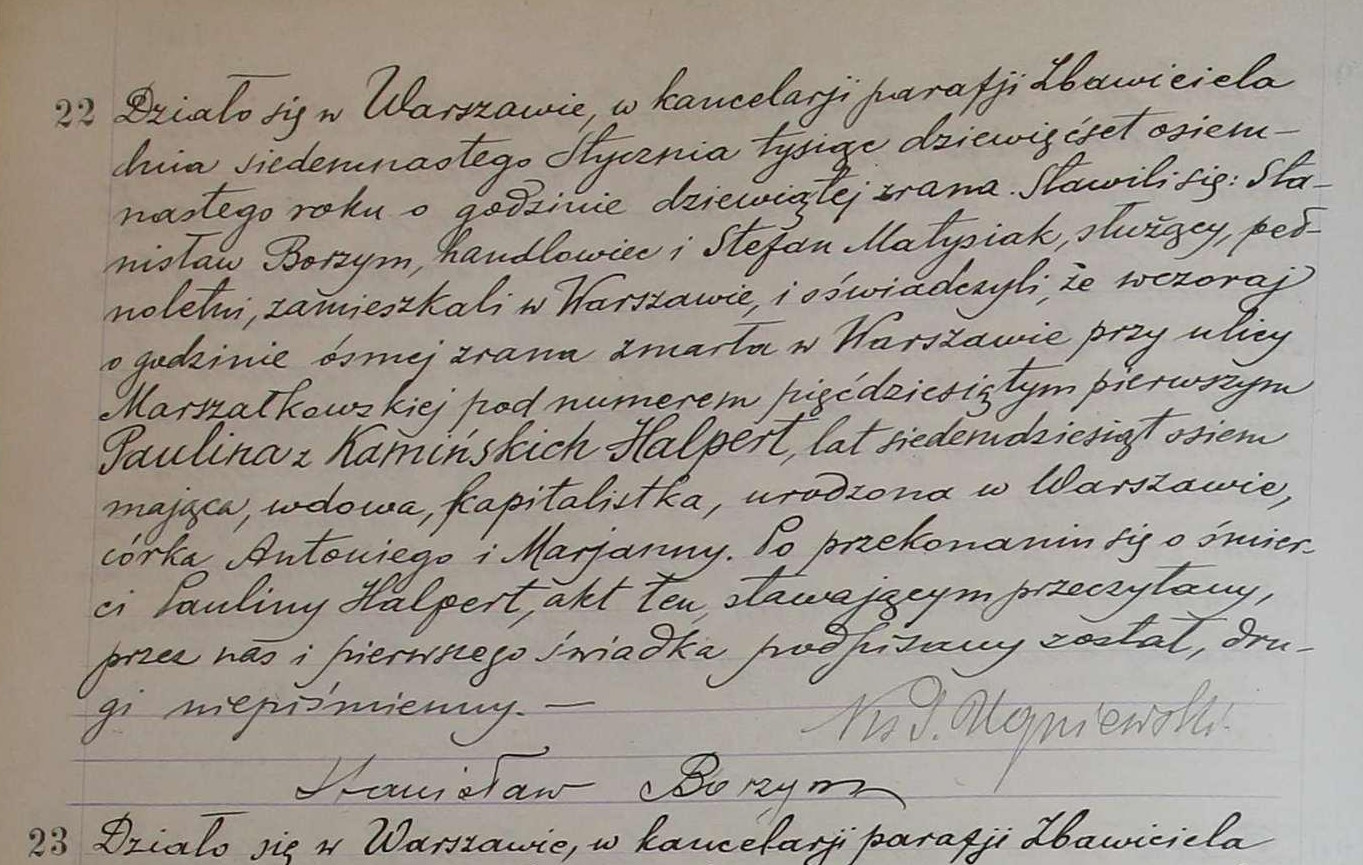 22 Działo się w Warszawie, w kancelarji parafji Zbawiciela
dnia siedemnastego Stycznia tysiąc dziewięćset osiem-
nastego roku o godzinie dziewiątej zrana. Stawili się: Sta-
nisław Borzym, handlowiec i Stefan Matysiak, służący, peł-
noletni, zamieszkali w Warszawie, i oświadczyli, że wczoraj
o godzinie ósmej zrana zmarła w Warszawie przy ulicy
Marszałkowskiej pod numerem pięćdziesiątym pierwszym
Paulina z Kamińskich Halpert, lat siedemdziesiąt osiem
mająca, wdowa, kapitalistka, urodzona w Warszawie,
córka Antoniego i Marjanny. Po przekonaniu się o śmier-
ci Pauliny Halpert, akt ten, stawającym przeczytany,
przez nas i pierwszego świadka podpisany został, dru-
gi niepiśmienny. —
Stanisław Borzym
23 Działo się w Warszawie, w kancelarji parafji Zbawiciela